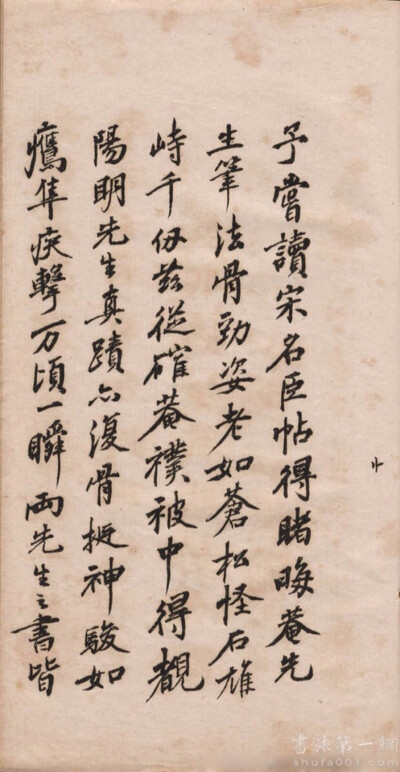 予嘗讀宋名臣帖得睹晦菴先
生筆法骨勁姿老如蒼松怪石雄
峙千仞茲從確菴襆被中得覩
陽明先生真蹟亦復骨挺神駿如
鷹隼疾擊万頃一瞬兩先生之書皆
書法第一網
shufa001.com